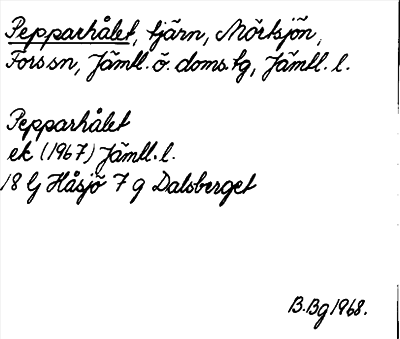 Pepparhålet, tjärn, Mörtsjön,
Forssn, Jämtl. ö. doms. tg, Jämtl. l.
Pepparhålet
ek (1967) Jämtl. l.
18 G Håsjö 7 g Dalsberget
B.Bg 1968.